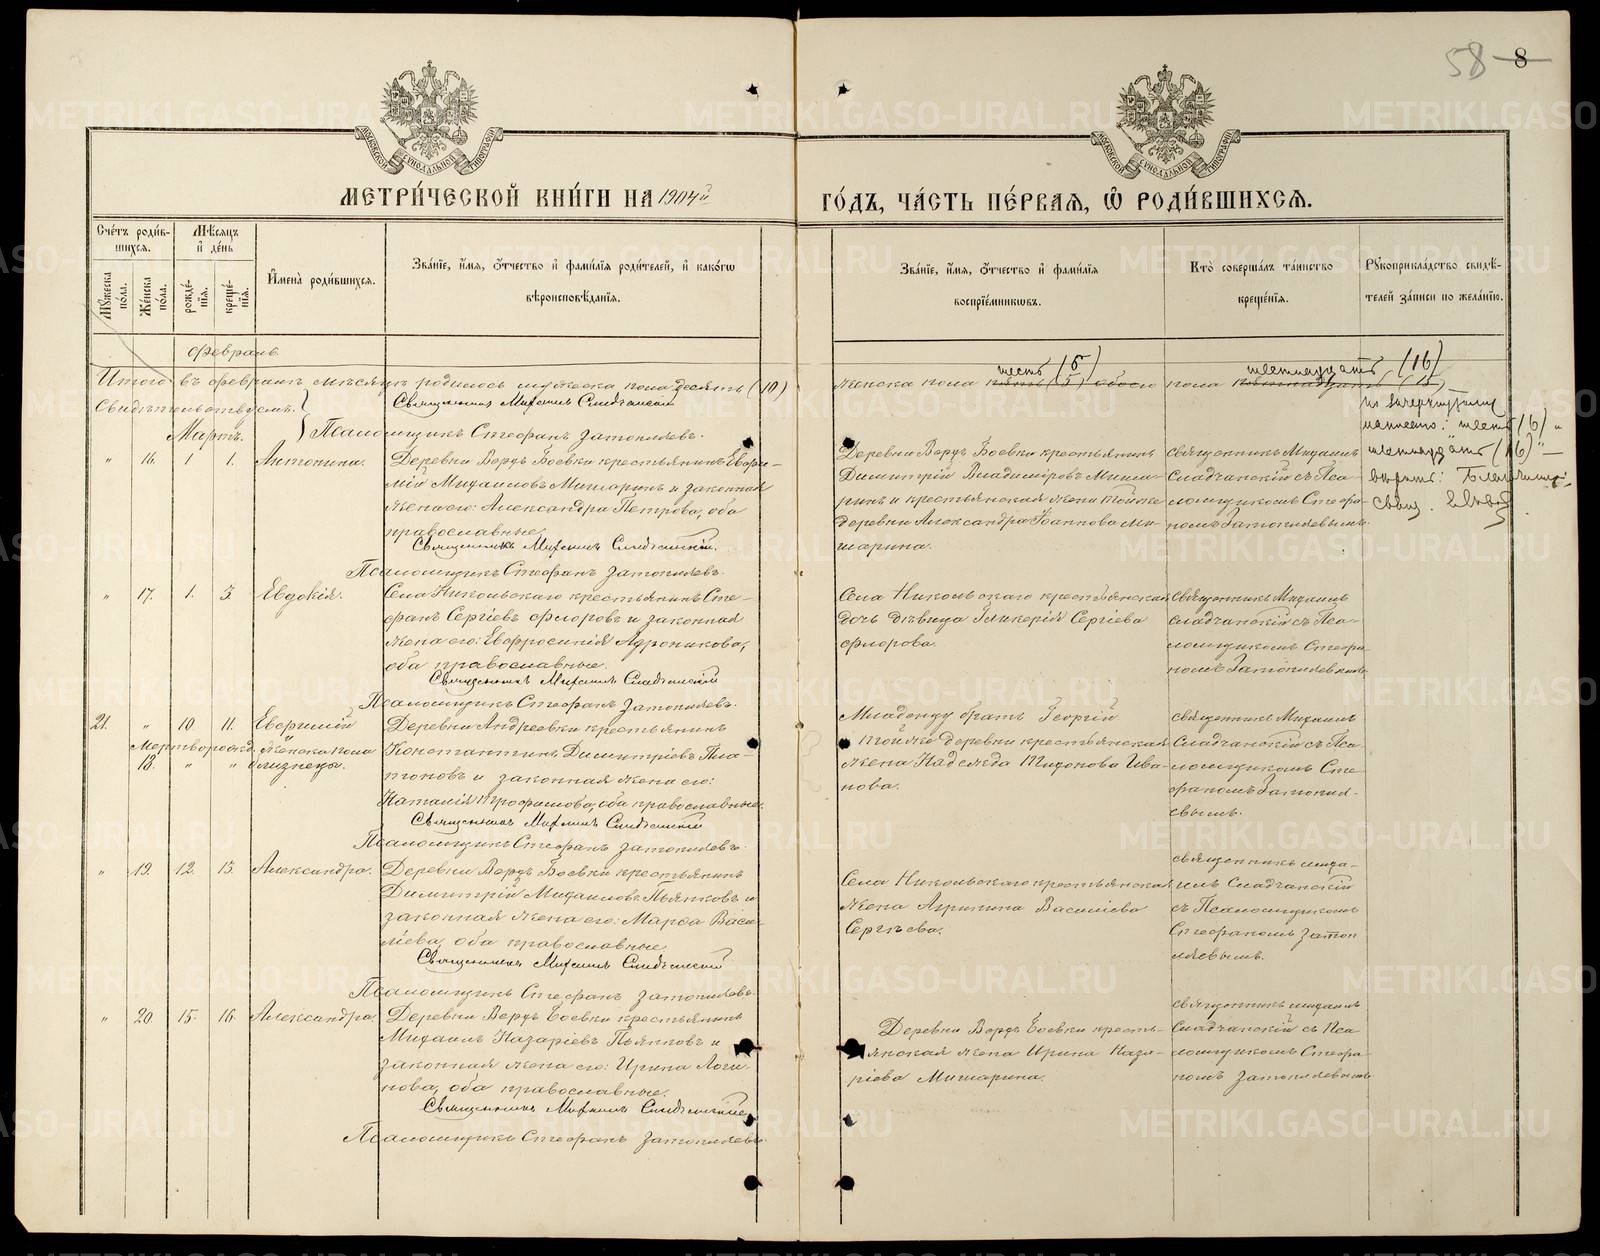 58 8
МЕТРИ́ЧЕСКОЙ КНИ́ГИ НА 1904й ГО́ДЪ, ЧА́СТЬ ПЕ́РВАЯ, Ѡ РОДИ́ВШИХСЯ.
Сче́тъ роди́вшихся.
Мꙋ́жеска по́ла.
Же́нска по́ла.
Мѣ́сяцъ и҆ де́нь
рожде́нїя.
креще́нїя.
И҆мена̀ роди́вшихся.
Зва́нїе, и҆́мя, ѻ҆́тчество и҆ фами́лїя роди́телей, и҆ како́гѡ
вѣроисповѣ́данїя.
Зва́нїе, и҆́мя, ѻ҆́тчество и҆ фами́лїя
воспрїе́мниковъ.
Кто̀ соверша́лъ та́инство
креще́нїя.
Рꙋкоприкла́дство свидѣ́телей за́писи по жела́нїю.
февраль
Итого въ февралѣ мѣсяцѣ родилось мужеска пола десять (10)
женска пола пять (5) обоего пола пятнадцать (15)
шесть (6)
шестнадцать (16)
Священникъ Михаилъ Сладчанскій
Псаломщикъ Стефанъ Затопляевъ.
по зачеркнутому
написано: шесть (6)
шестнадцать (16)
вѣрно: Благочинный
Свящ.
Мартъ.
" 16. 1 1. Антонина.
Деревни Верхъ Боевки крестьянинъ Евфи-
мій Михаиловъ Мишаринъ и законная
жена его: Александра Петрова, оба
православные.
Священникъ Михаилъ Сладчанскій.
Псаломщикъ Стефанъ Затопляевъ.
Деревни Верхъ Боевки крестьянинъ
Димитрій Владиміровъ Миша-
ринъ и крестьянская жена той же
деревни Александра Іоаннова Ми-
шарина.
священникъ Михаилъ
Сладчанскій съ Пса-
ломщикомъ Стефа-
номъ Затопляевымъ.
" 17. 1. 3. Евдокія.
Села Никольскаго крестьянинъ Сте-
фанъ Сергіевъ Флоровъ и законная
жена его: Евфросинія Андроникова,
оба православные.
Священникъ Михаилъ Сладчанскій
Псаломщикъ Стефанъ Затопляевъ.
Села Никольскаго крестьянская
дочь дѣвица Гликерія Сергіева
Флорова.
священникъ Михаилъ
Сладчанскій съ Пса-
ломщикомъ Стефа-
номъ Затопляевымъ
21. " 10. 11. Георгій
Мертворожд. Женска пола
18. " " близнецы.
Деревни Андреевки крестьянинъ
Константинъ Димитріевъ Пла-
тоновъ и законная жена его:
Наталія Трофимова, оба православные.
Священникъ Михаилъ Сладчанскій
Псаломщикъ Стефанъ Затопляевъ.
Младенцу братъ Георгій
Той же деревни крестьянская
жена Надежда Тихонова Ива-
нова.
священникъ Михаилъ
Сладчанскій съ Пса-
ломщикомъ Сте-
фаномъ Затопля-
евымъ.
" 19. 12. 13. Александра.
Деревни Верхъ Боевки крестьянинъ
Димитрій Михаиловъ Пьянковъ и
законная жена его: Марѳа Васи-
ліева, оба православные.
Священникъ Михаилъ Сладчанскій
Псаломщикъ Стефанъ Затопляевъ.
Села Никольскаго крестьянская
жена Агрипина Василіева
Сергѣева.
священникъ Миха-
илъ Сладчанскій
съ Псаломщикомъ
Стефаномъ Затоп
ляевымъ.
" 20. 15. 16. Александра.
Деревни Верхъ Боевки крестьянинъ
Михаилъ Назаріевъ Пьянковъ и
законная жена его: Ирина Логи-
нова, оба православные.
Священникъ Михаилъ Сладчанскій
Псаломщикъ Стефанъ Затопляевъ.
Деревни Верхъ Боевки кресть-
янская жена Ирина Наза-
ріева Мишарина.
священникъ Михаилъ
Сладчанскій съ Пса
ломщикомъ Стефа-
номъ Затопляевымъ
METRIKI.GASO-URAL.RU